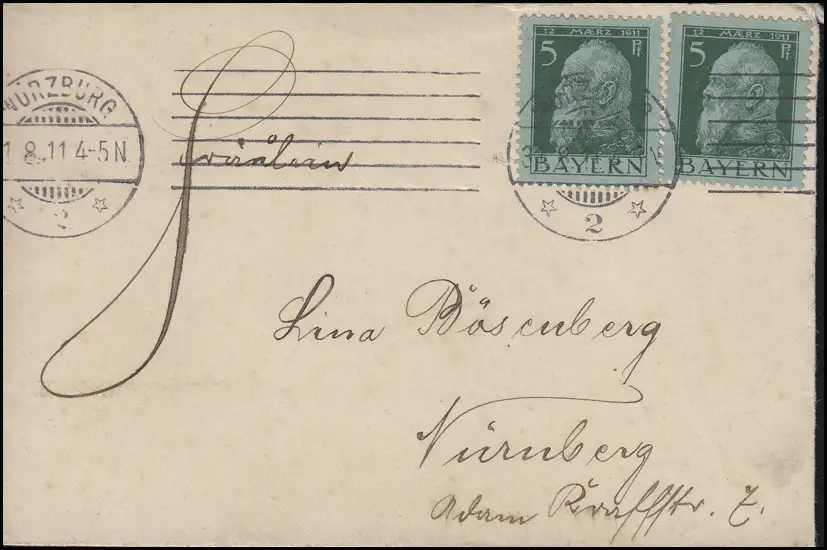 12 MÆRZ 1911
5 Pf.
BAYERN
12 MÆRZ 1911
5 Pf.
BAYERN
WÜRZBURG
1 8.11 4-5N
2
2
Fräulein
Lina Bösenberg
Nürnberg
Adam Kraftstr. 7.